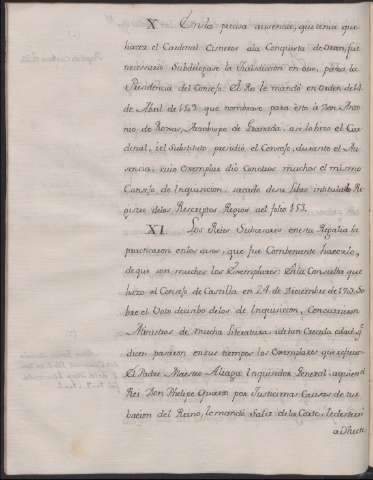 X En la precisa ausencia, que tenia que
hacer el Cardenal Cisneros ala Conquista de Oran, fue
necesario Subdelegase la Jurisdiccion en otro, para la
Presidencia del Consejo. El Rei le mandó en Orden de
de Abril de que nombrase para esto à Don Anto
nio, de Roxas, Arzobispo de Granada, asi lo hizo el Car
denal, i el Substituto presidió el Consejo, durante el Au
sencia, cuio Exemplar dió con otros muchos el mismo
Consejo, de Inquisicion, sacado desu Libro intitulado Re
gistro delos Rescriptos Regios, al folio 153.
XI. Los Reies Subcesores en esta Regalia la
practicaron en los casos, que fue Combeniente hacerlo,
de que son muchos los Exemplares: En la Consulta que
hizo el Consejo de Castilla en 24 de Diciembre de 1703. So
bre el Voto decisibo delos de Inquisicion, Concurrieron
Ministros de mucha literatura, i de tan Crecida edad, q
dicen pasaron en sus tiempos los Exemplares que
El Padre Maestro Aliaga Inquisidor General, aquien el
Rei Don Phelipe Quarto por Justisimas Causas de tur
bacion del Reino, le mandó Salir dela Corte, le desterró
a Huete